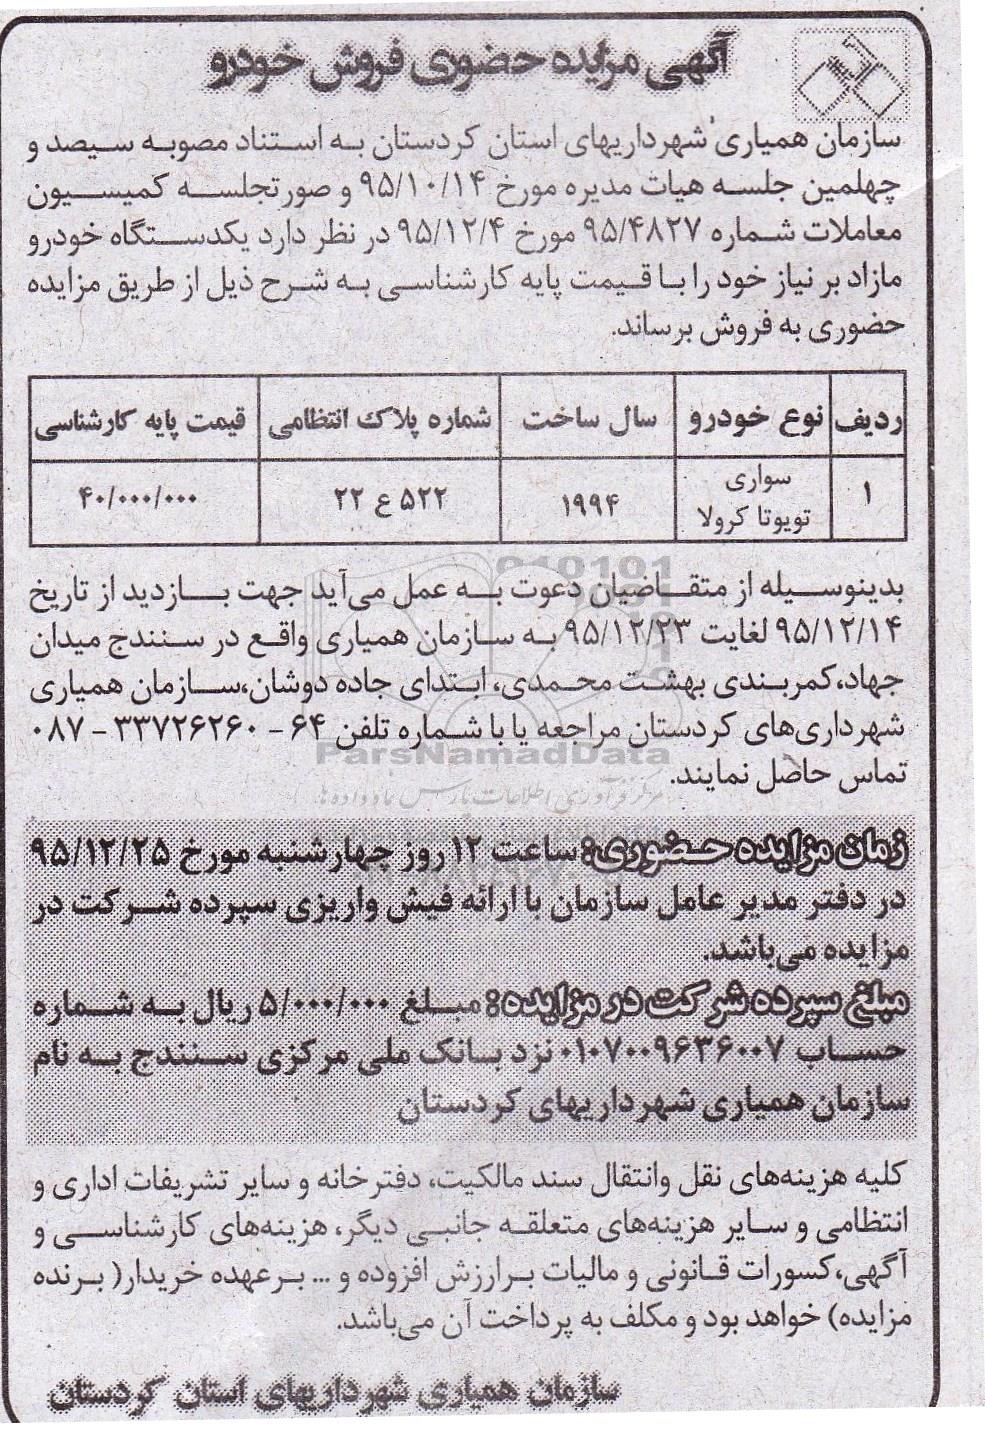 آگهی مزایده حضوری فروش خودرو
سازمان همیاری شهرداریهای استان کردستان به استناد مصوبه سیصد و
چهلمین جلسه هیات مدیره مورخ ۹۵/۱۰/۱۴ و صورتجلسه کمیسیون
معاملات شماره ۹۵/۴۸۲۷ مورخ ۹۵/۱۲/۴ در نظر دارد یکدستگاه خودرو
مازاد بر نیاز خود را با قیمت پایه کارشناسی به شرح ذیل از طریق مزایده
حضوری به فروش برساند.
ردیف نوع خودرو سال ساخت شماره پلاک انتظامی قیمت پایه کارشناسی
۱ سواری تویوتا کرولا ۱۹۹۴ ۵۲۲ ع ۲۲ ۴۰/۰۰۰/۰۰۰
بدینوسیله از متقاضیان دعوت به عمل می‌آید جهت بازدید از تاریخ
۹۵/۱۲/۱۴ لغایت ۹۵/۱۲/۲۳ به سازمان همیاری واقع در سنندج میدان
جهاد،کمربندی بهشت محمدی، ابتدای جاده دوشان،سازمان همیاری
شهرداری‌های کردستان مراجعه یا با شماره تلفن ۶۴ - ۳۳۷۲۶۲۶۰ - ۰۸۷
ParsNamadData
تماس حاصل نمایند.
مرکز فرآوری اطلاعات پارس نماد داده ها
زمان مزایده حضوری: ساعت ۱۲ روز چهارشنبه مورخ ۹۵/۱۲/۲۵
در دفتر مدیر عامل سازمان با ارائه فیش واریزی سپرده شرکت در
مزایده می‌باشد.
مبلغ سپرده شرکت در مزایده: مبلغ ۵/۰۰۰/۰۰۰ ریال به شماره
حساب ۰۱۰۷۰۰۹۶۳۶۰۰۷ نزد بانک ملی مرکزی سنندج به نام
سازمان همیاری شهرداریهای کردستان
کلیه هزینه‌های نقل وانتقال سند مالکیت، دفترخانه و سایر تشریفات اداری و
انتظامی و سایر هزینه‌های متعلقه جانبی دیگر، هزینه‌های کارشناسی و
آگهی،کسورات قانونی و مالیات برارزش افزوده و ... برعهده خریدار( برنده
مزایده) خواهد بود و مکلف به پرداخت آن می‌باشد.
سازمان همیاری شهرداریهای استان کردستان